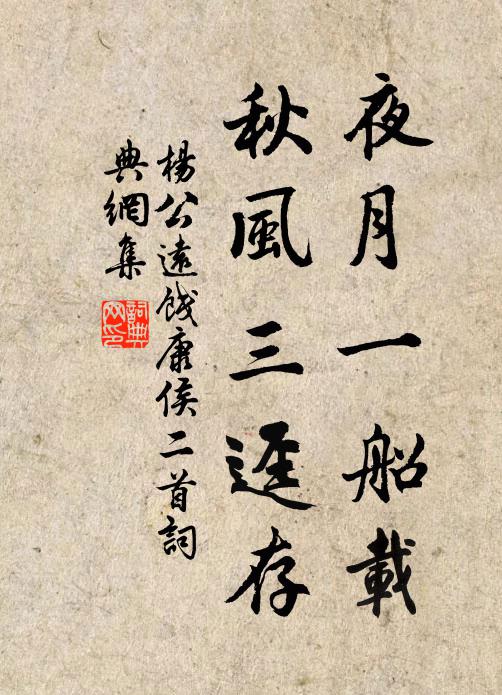 夜月一船載
秋風三逕存
楊公遠餞康侯二首詞
典網集
詞典网印